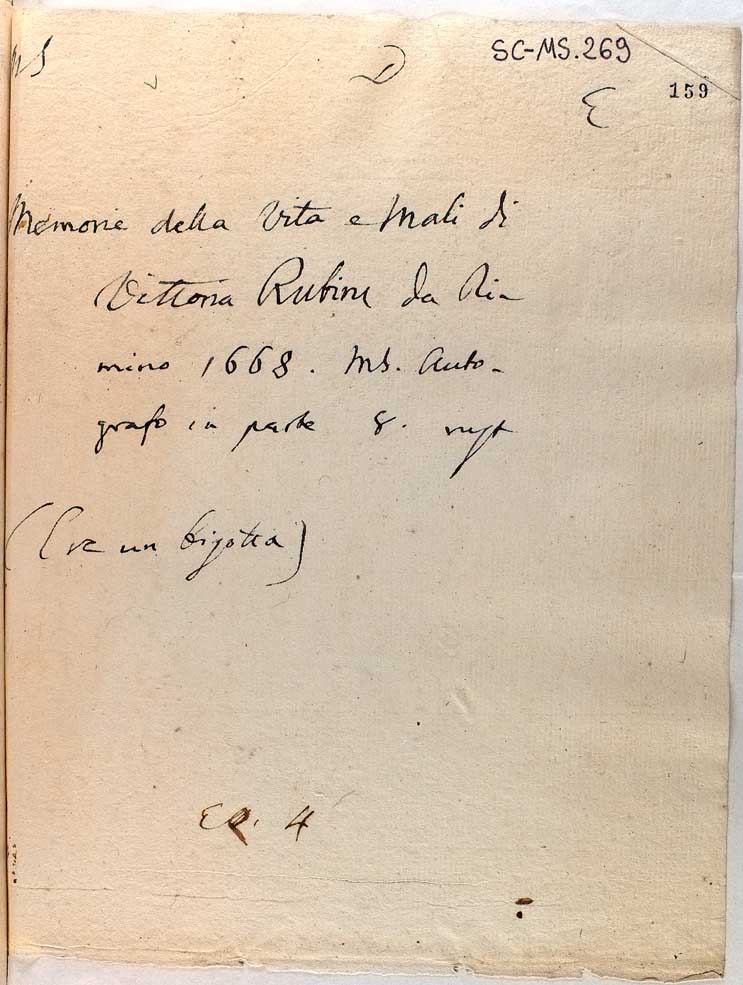 MS
SC-MS.269
159
Memorie della Vita e Mali di
Vittoria Rubini da Ri-
mino 1668. MS. Auto-
grafo in parte 8.
(Era un bigotta)
4